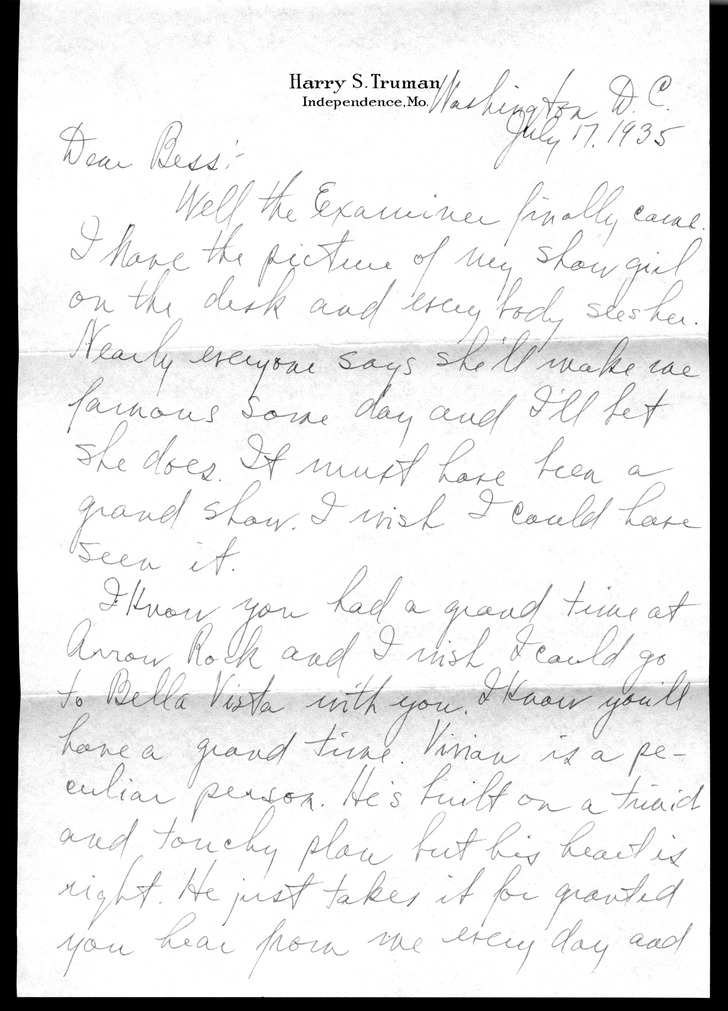 Harry S. Truman
Independence, Mo.
Washington D. C.
July 17, 1935
Dear Bess:-
Well the Examiner finally came.
I have the picture of my show girl
on the desk and every body sees her.
Nearly everyone says she'll make me
famous some day and I'll bet
she does. It must have been a
grand show. I wish I could have
seen it.
I know you had a grand time at
Arrow Rock and I wish I could go
to Bella Vista with you. I know you'll
have a grand time. Vivian is a pe-
culiar person. He's built on a timid
and touchy plan but his heart is
right. He just takes it for granted
you hear from me every day and